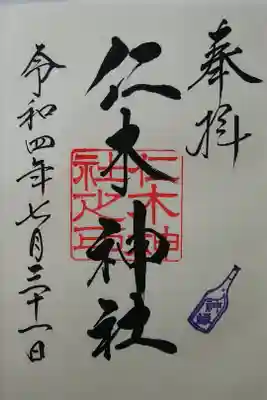 奉拝
仁木神社
仁木神
社之印
令和四年七月三十一日